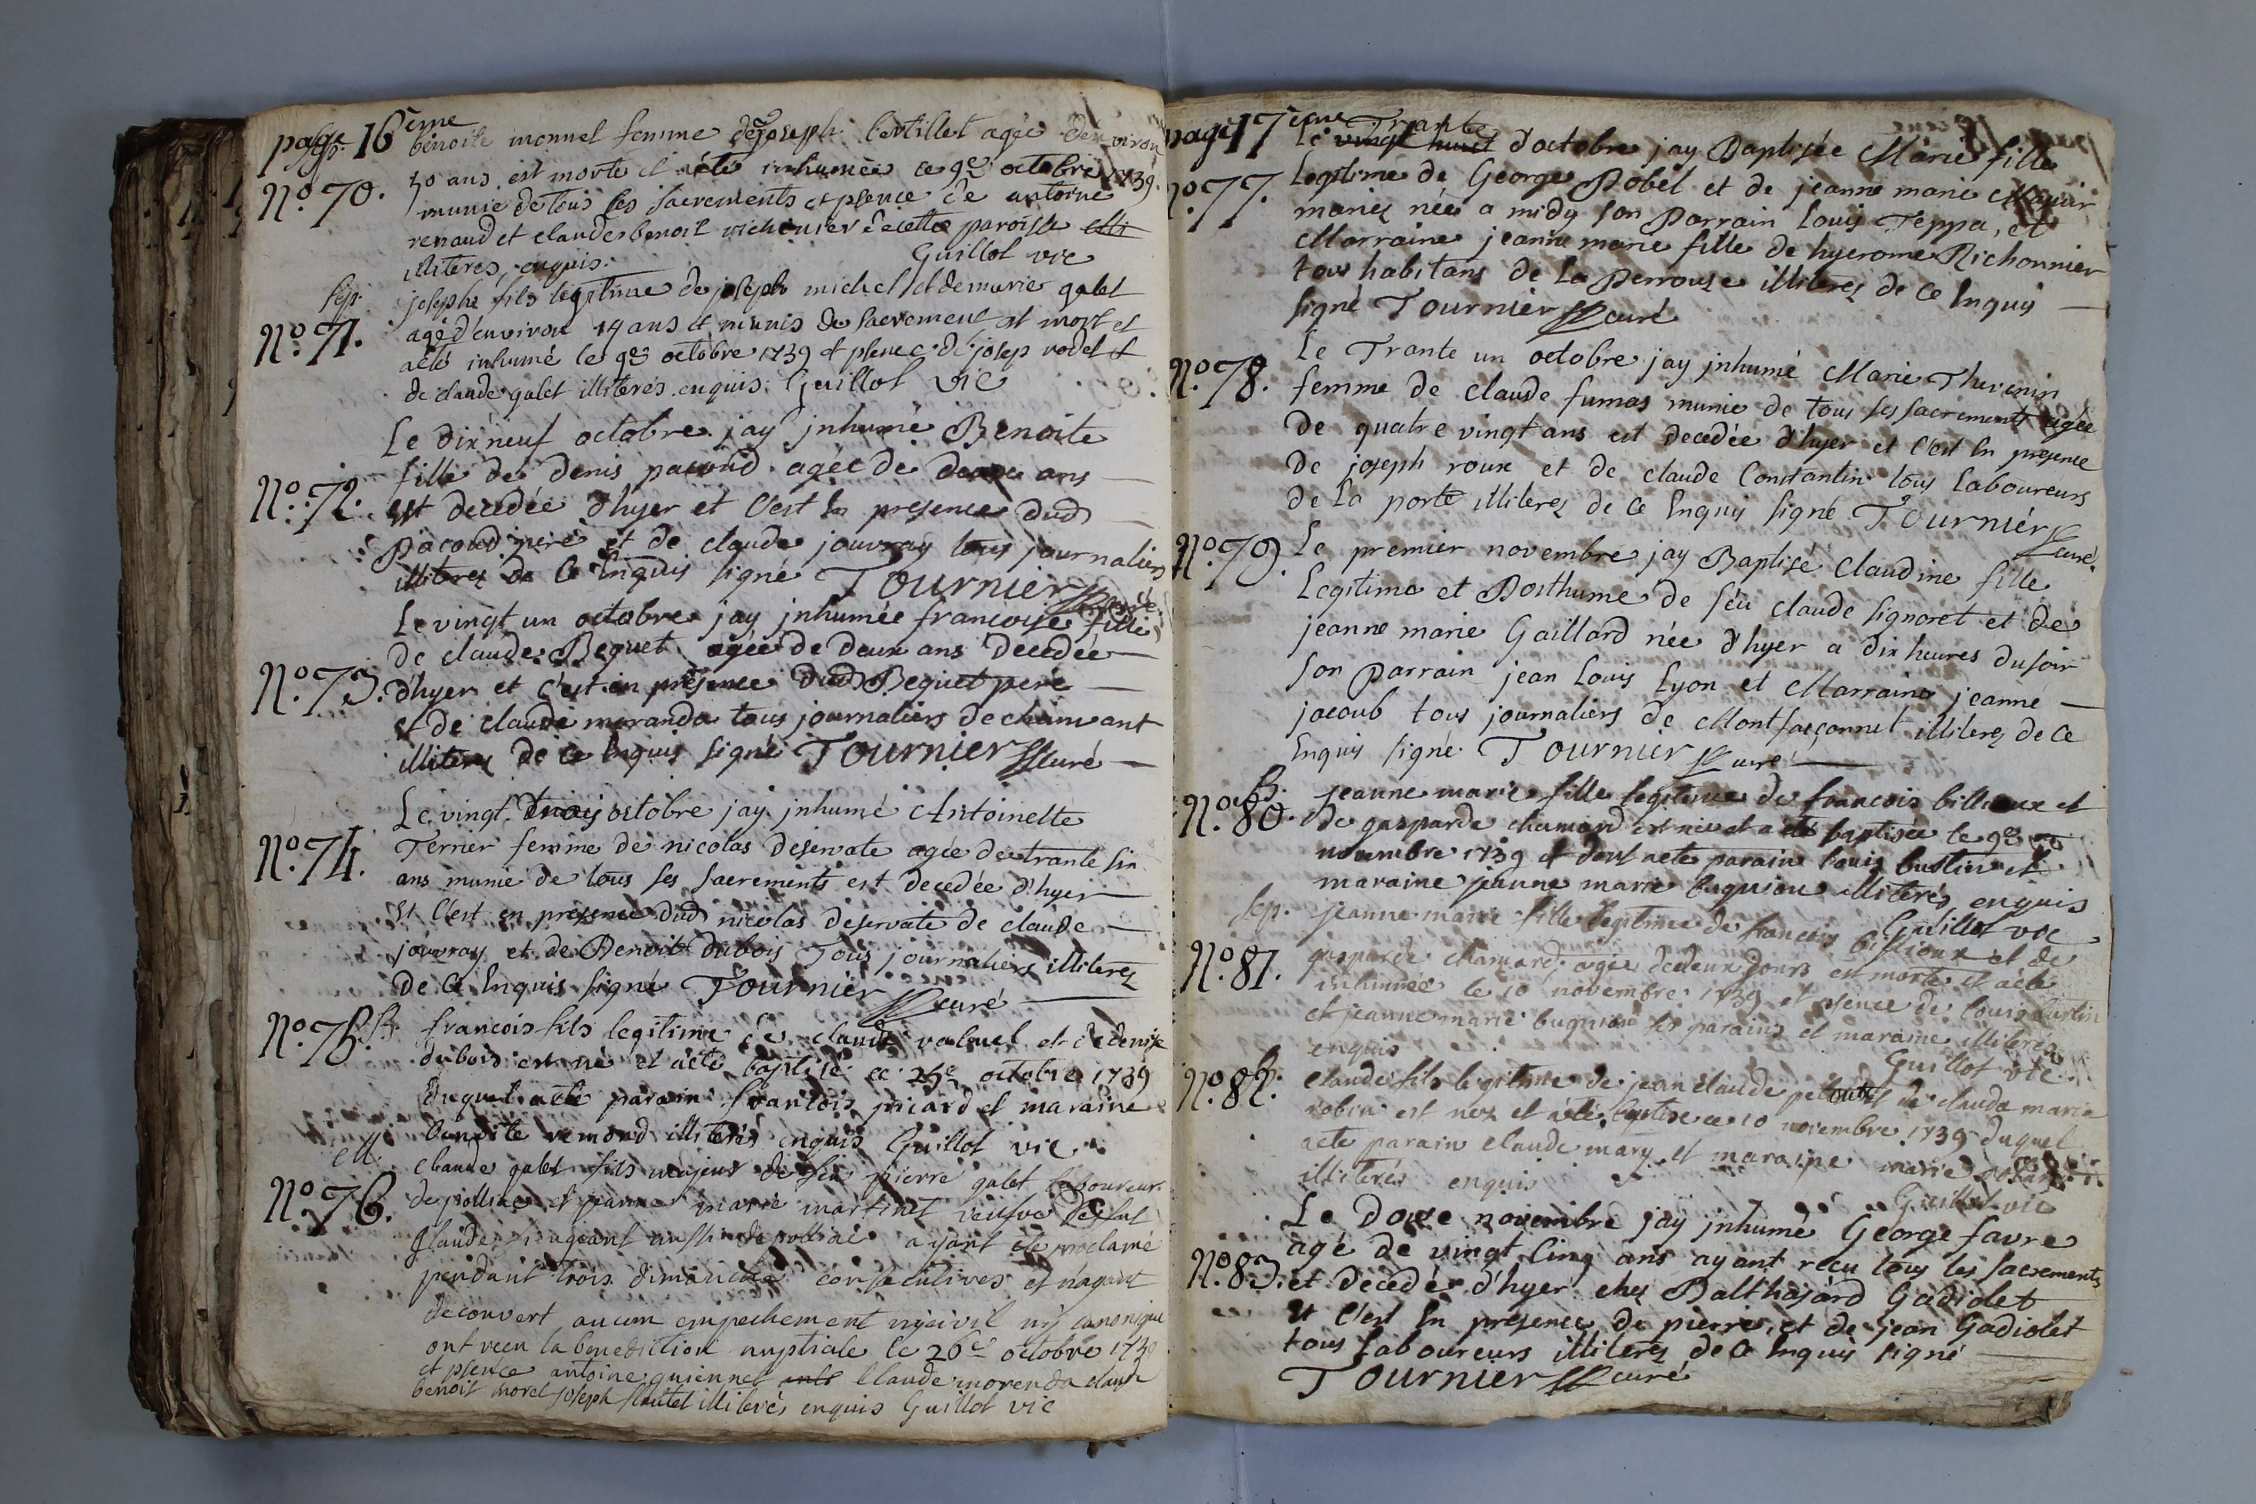 page 16ème
Sep. benoite monnel femme de joseph bertillet agée denviron
No. 70. 50 ans est morte et aété inhumée ce 9e octobre 1739.
munie de tous ses sacrements et psence de antoine
renaud et claude benoit vichonier de cette paroisse illi
illiterés enquis. Guillot vic
Sep. josephe fils legitime de joseph michel et de marie galet
No. 71. agé d'environ 14 ans et munis de sacrement est mort et
aété inhumé le 9e octobre 1739 et psence de josep vodel et
de claude galet illiterés enquis. Guillot vic
Le dix neuf octobre jay jnhumé Benoite
fille de denis pacoud agée de deux ans
No. 72. est decedée d'hyer et c'est En presence dud
Pacoud pere et de claude jouvray tous journaliers
illiterez de ce Enquis signé Tournier curé
Le vingt un octobre jay jnhumée francoise fille
de claude Bequet agée de deux ans decedée
No. 73. d'hyer et c'est en presence dud Bequet pere
et de claude moranda tous journaliers de
illiterez de ce Enquis signé Tournier curé
Le vingt trois octobre jay jnhumé Antoinette
No. 74. Terrier femme de nicolas deservate agée de trante six
ans munie de tous ses sacrements est decedée d'hyer
Et c'est en presence dud nicolas deservate de claude
jouvray et de Benoit dubois Tous journaliers illiterez
de ce Enquis signé Tournier curé
No. 75. B. francois fils legitime de claude valuel et de denise
dubois est né et aété baptisé ce 25e octobre 1739
duquel aété parain francois picard et maraine
benoite remond illiterés enquis Guillot vic
M. claude galet fils majeur de feu pierre galet laboureur
No. 76. de polliac et jeanne marie martinet veufve de fut
Claude aussi de polliac ayant été proclamé
pendant trois dimanches consecutives et n'ayant
decouvert aucun empechement ny civil ny canonique
ont recu la benediction nuptiale le 26e octobre 1739
et psence antoine quiennel Claude morenda claude
benoit morel joseph flautet illiterés enquis Guillot vic
page 17ème Trante
Le vingt huit d'octobre jay Baptisée Marie fille
No. 77. Legitime de George Pobel et de jeanne marie
mariez née a midy son Parrain Louis Teppa, et
Marraine jeanne marie fille de hyerome Richonnier
tous habitans de La Perrouze illiterez de ce Enquis
signé Tournier curé
Le Trante un octobre jay jnhumé Marie Thevenin
No. 78. femme de claude fumas munie de tous ses sacrements agée
de quatre vingt ans est decedée d'hyer et c'est En presence
de joseph roux et de claude Constantin tous Laboureurs
de La porte illiterez de ce Enquis signé Tournier curé
No. 79. Le premier novembre jay Baptisé Claudine fille
Legitime et Posthume de feu claude signoret et de
jeanne marie Gaillard née d'hyer a dix heures du soir
son Parrain jean Louis Lyon et Marraine jeanne
jacoub tous journaliers de Montfaconnet illiterez de ce
Enquis signé Tournier curé
B. jeanne marie fille legitime de francois billioux et
No. 80. de gasparde chanard est née et a été baptisée le 9e
novembre 1739 et dont aete parain louis bustin et
maraine jeanne marie buguion illiterés enquis
Guillot vic
Sep. jeanne marie fille legitime de francois billioux et de
No. 81. gasparde chanard agée de deux jours est morte et aété
inhumée le 10 novembre 1739 et psence de louis bustin
et jeanne marie buguion ses parains et maraine illiterés
enquis Guillot vic.
No. 82. B. claude fils legitime de jean claude et de claude marie
robin est nez et aété baptisé ce 10 novembre 1739 duquel
aete parain claude mary et maraine marie
illiterés enquis Guillot vic
Le Douze novembre jay jnhumé George favre
agé de vingt Cinq ans ayant recu tous les sacrements
No. 83. et decedér d'hyer chez Balthasard Gadiolet
Et c'est En presence de pierre et de jean Gadiolet
tous Laboureurs illiterez de ce Enquis signé
Tournier curé